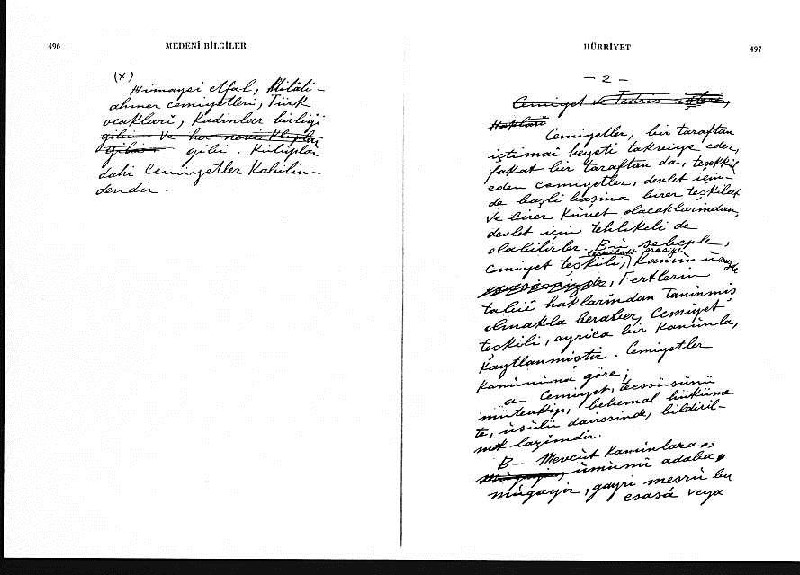 496
MEDENİ BİLGİLER
(x)
Himayei Etfal, Hilâli-
ahmer cemiyetleri, Türk
ocakları, Kadınlar birliği
gibi ve her nevi klüpler
gibi. Kulüpler
dahi Cemiyetler Kabilin-
dendir.
HÜRRİYET
497
- 2 -
Cemiyet ve Tedris
Hakları
Cemiyetler, bir taraftan
içtimaî heyeti takviye eder,
fakat bir taraftan da, teşekkül
eden cemiyetler, devlet için-
de başlı başına birer teşkilât
ve birer kuvvet olacaklarından,
devlet için tehlikeli de
olabilirler. Bu sebeple,
cemiyet teşkili,
Fertlerin
tabiî haklarından tanınmış
olmakla beraber, Cemiyet
teşkili, ayrıca bir kanunla,
kayıtlanmıştır. Cemiyetler
kanununa göre;
a- Cemiyet, tesisi günü
müteakip, behemal hükûme
te, usulü dairesinde, bildiril-
mek lazımdır.
B- Mevcut kanunlara,
umumî adaba,
mugayir, gayri meşrû bir
esasa veya